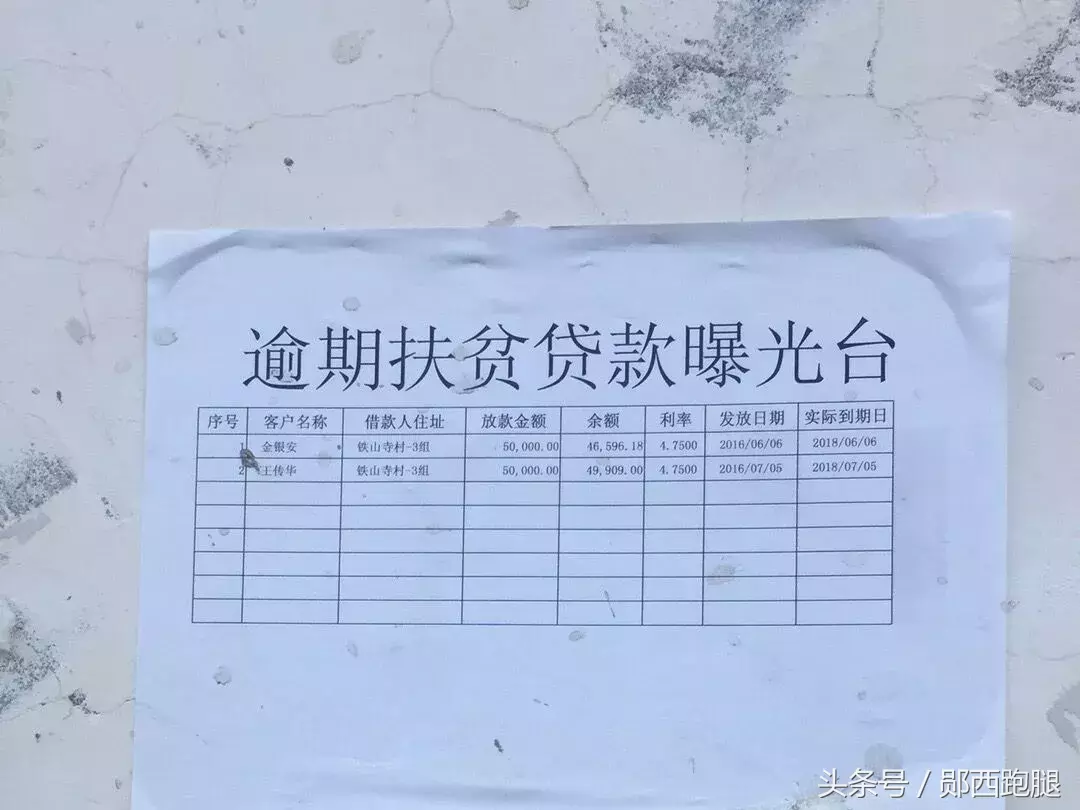 逾期扶贫贷款曝光台
序号 客户名称 借款人住址 放款金额 余额 利率 发放日期 实际到期日
1 金银安 铁山寺村-3组 50,000.00 46,596.18 4.7500 2016/06/06 2018/06/06
2 王传华 铁山寺村-3组 50,000.00 49,909.00 4.7500 2016/07/05 2018/07/05
头条号 / 郧西跑腿